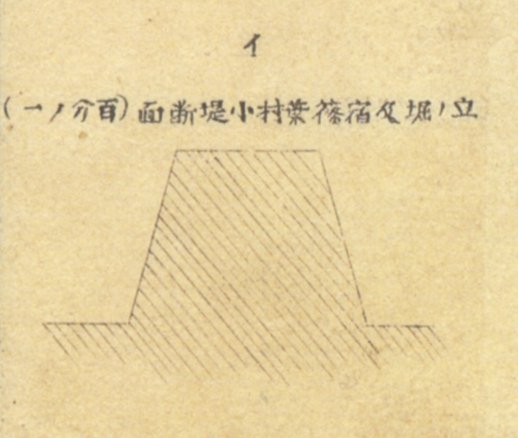 イ
立ノ堀及宿篠葉村小堤断面(百分ノ一)